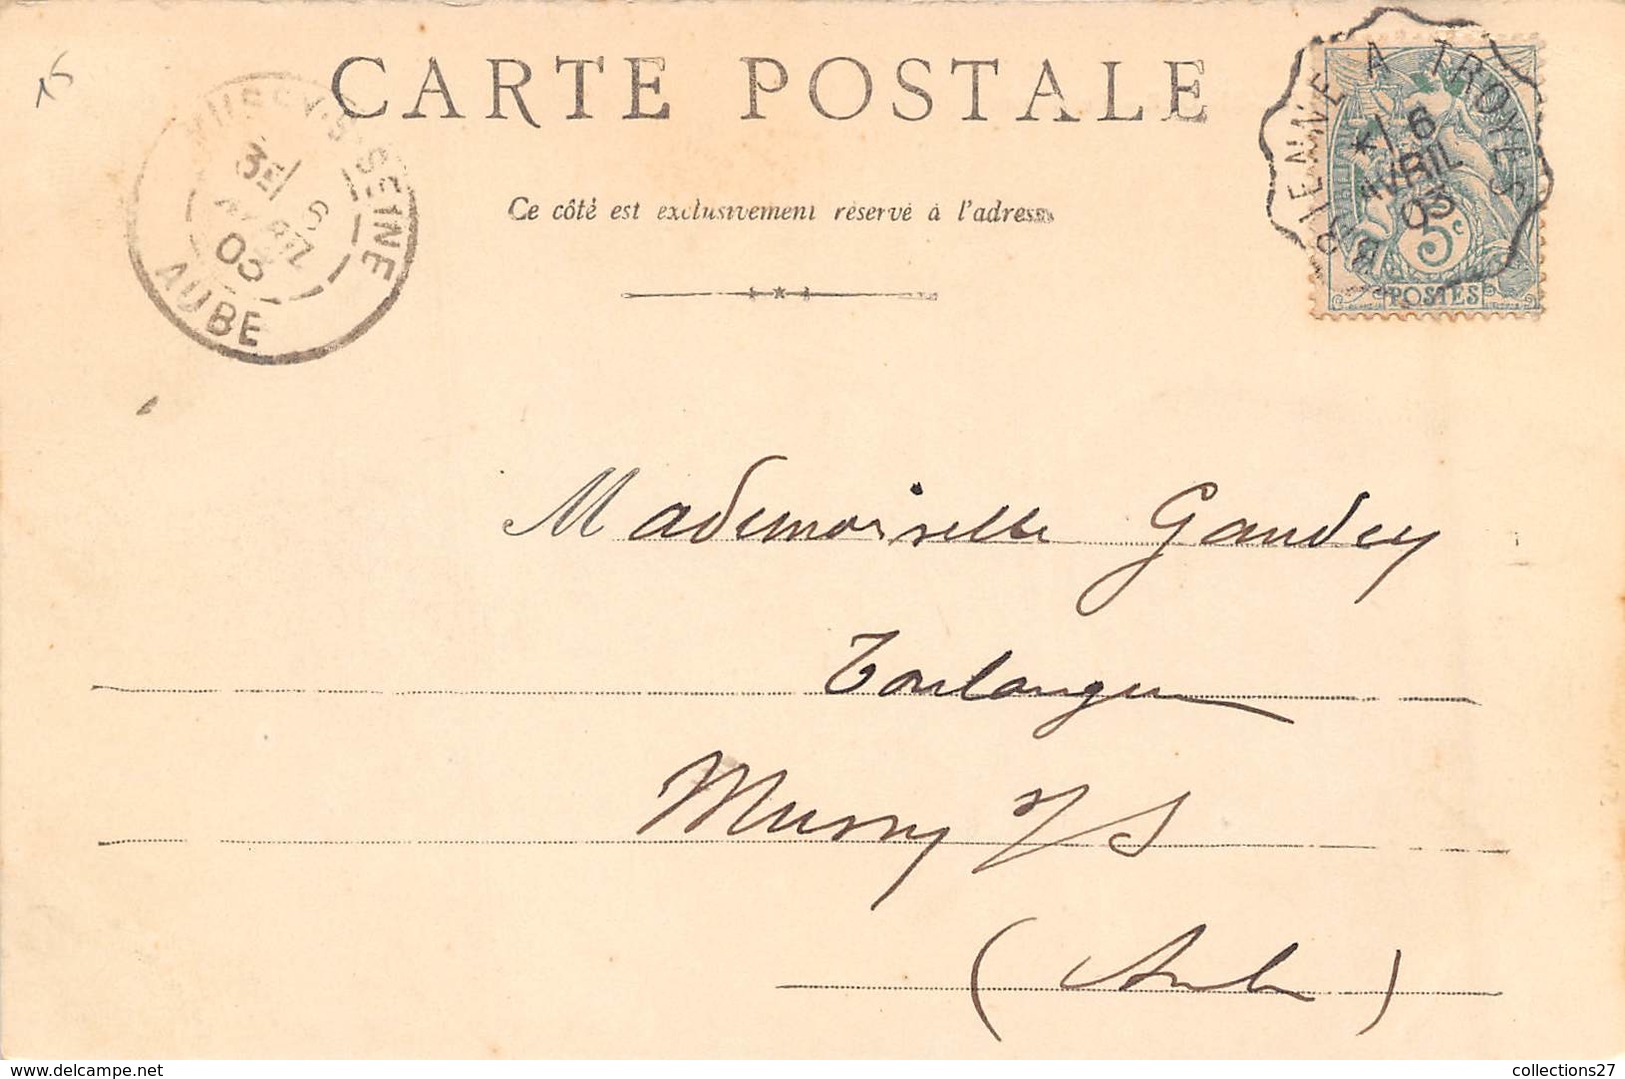 15
CARTE POSTALE
Ce côté est exclusivement réservé à l'adresse
MUSSY-S-SEINE
3E 6
AVRIL
03
AUBE
BRIENNE A TROYES
6
AVRIL
03
5c
POSTES
Mademoiselle Gaudey
Boulanger
Mussy s/S
(Aube)
collections27